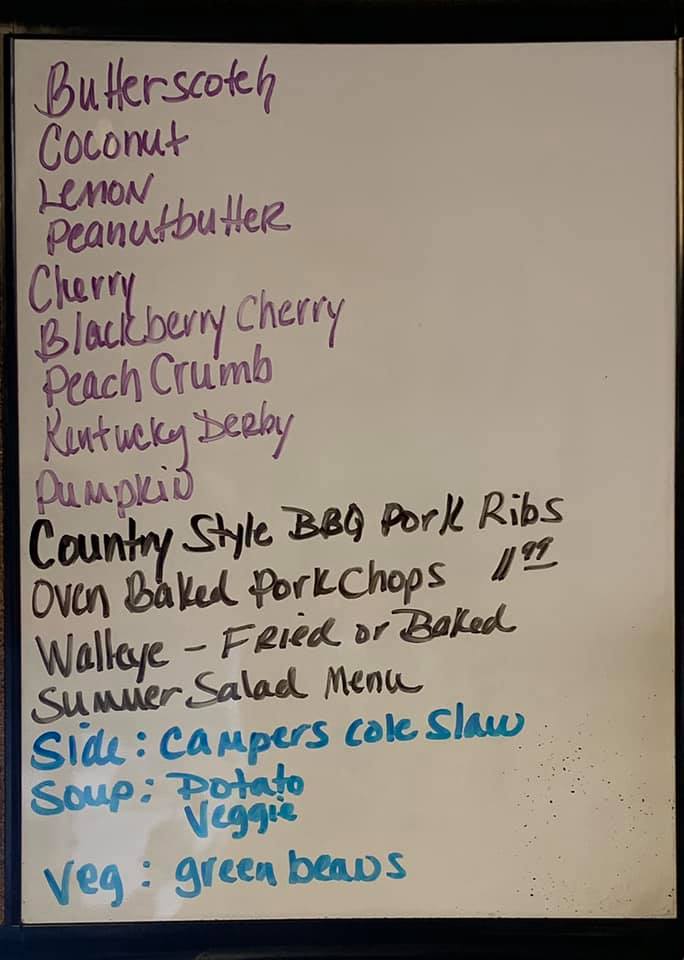 Butterscotch
Coconut
Lemon
Peanutbutter
Cherry
Blackberry Cherry
Peach Crumb
Kentucky Derby
Pumpkin
Country Style BBQ Pork Ribs
Oven Baked Pork Chops 11.99
Walleye - Fried or Baked
Summer Salad Menu
Side: Campers cole Slaw
Soup: Potato
Veggie
Veg: green beans